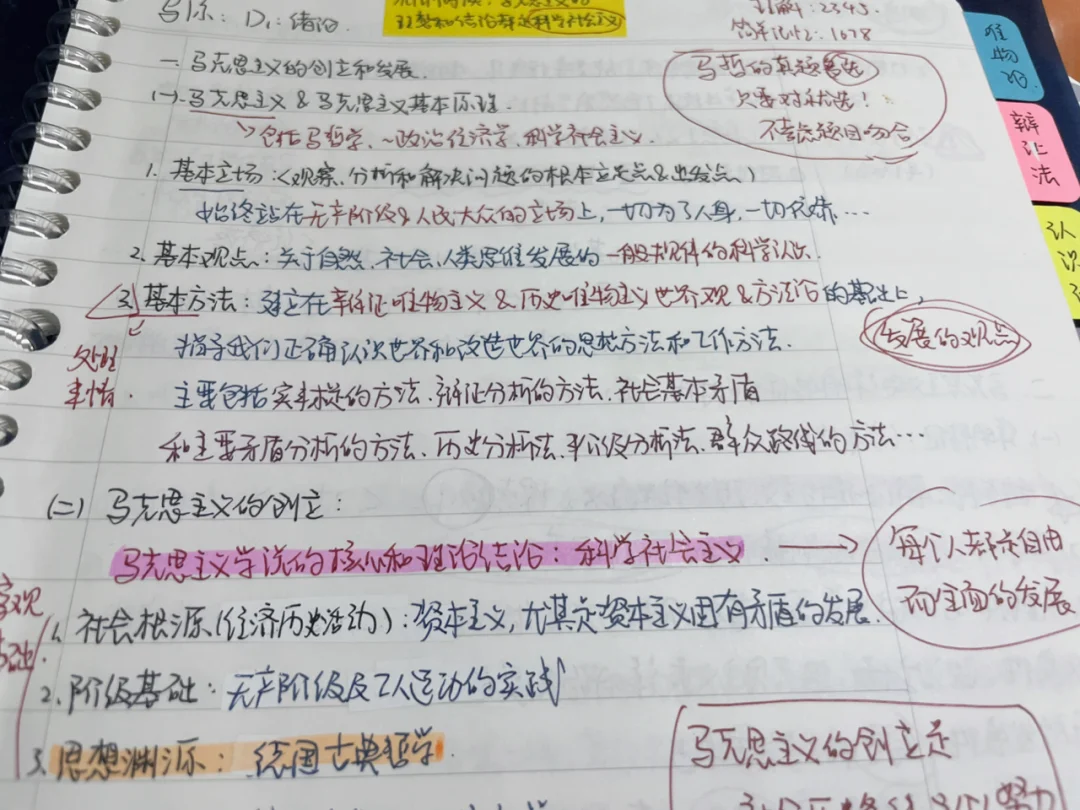 马原: D1: 绪论
理想和结论都是科学社会主义
简单记忆: 1.6.7.8
唯物论
一. 马克思主义的创立和发展.
马哲的真题
次要对就选!
不管题目吻合
辩证法
(一). 马克思主义 & 马克思主义基本原理
包括马哲学、~政治经济学、科学社会主义.
1. 基本立场: (观察、分析和解决问题的根本立足点&出发点)
始终站在无产阶级&人民大众的立场上, 一切为了人民, 一切依靠…
2. 基本观点: 关于自然、社会、人类思维发展的一般规律的科学认识.
认识论
3. 基本方法: 建立在辩证唯物主义&历史唯物主义世界观&方法论的基础上,
指导我们正确认识世界和改造世界的思想方法和工作方法.
发展的观点
处理事情.
主要包括实事求是的方法、辩证分析的方法、社会基本矛盾
和主要矛盾分析的方法、历史分析法、阶级分析法、群众路线的方法…
(二) 马克思主义的创立:
马克思主义学说的核心和理论结论: 科学社会主义.
→ 每个人都是自由
而全面的发展
客观
基础
1. 社会根源(经济历史活动): 资本主义, 尤其是资本主义固有矛盾的发展.
2. 阶级基础: 无产阶级及工人运动的实践
3. 思想渊源: 德国古典哲学
马克思主义的创立是